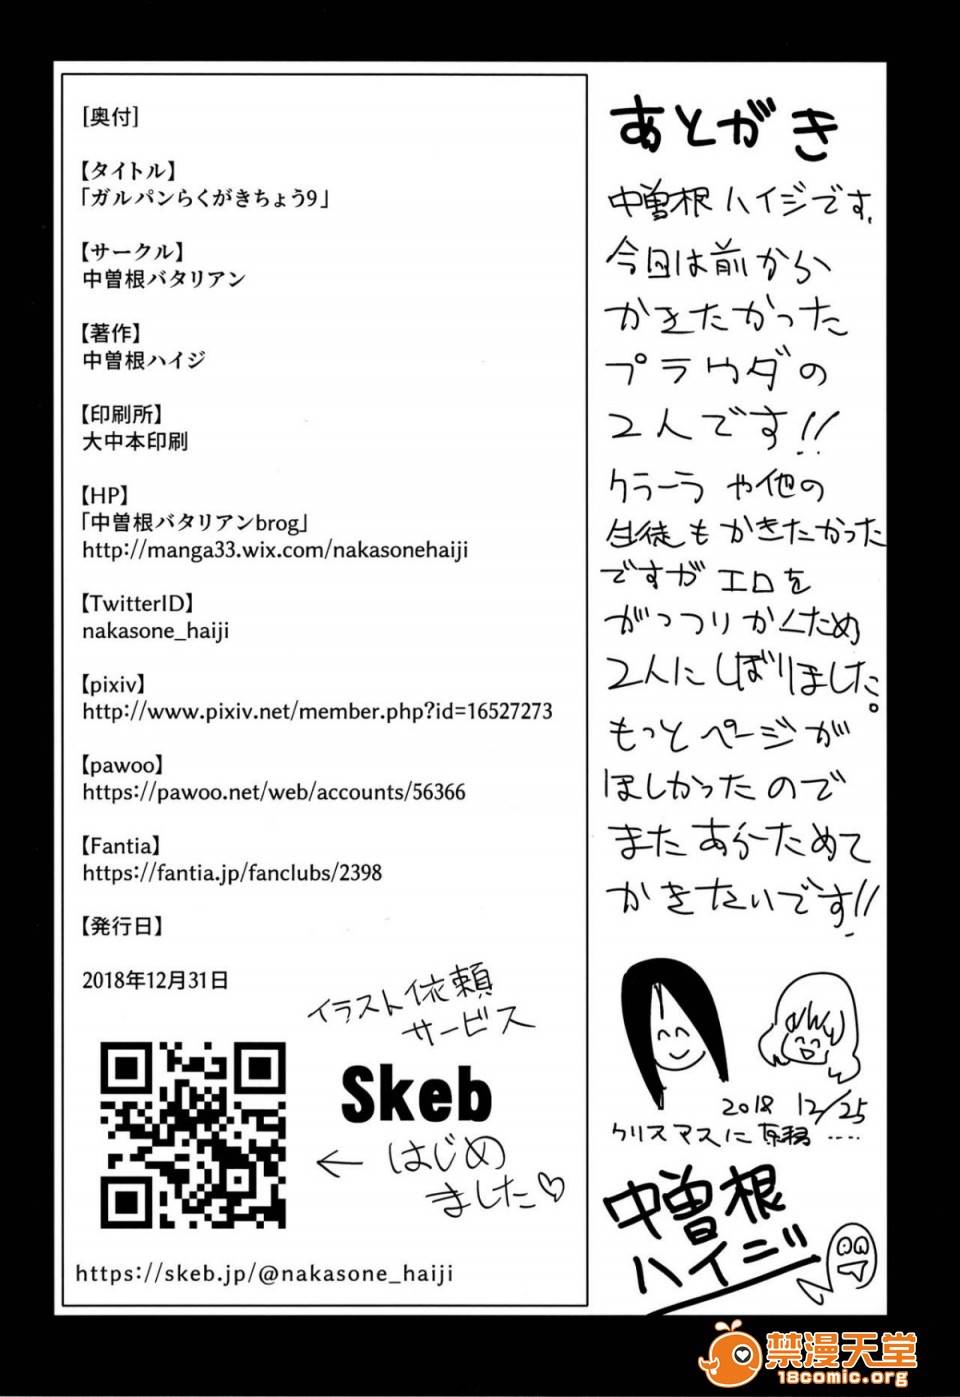 [奥付]
【タイトル】
「ガルパンらくがきちょう9」
【サークル】
中曽根バタリアン
【著作】
中曽根ハイジ
【印刷所】
大中本印刷
【HP】
「中曽根バタリアンbrog」
http://manga33.wix.com/nakasonehaiji
【TwitterID】
nakasone_haiji
【pixiv】
http://www.pixiv.net/member.php?id=16527273
【pawoo】
https://pawoo.net/web/accounts/56366
【Fantia】
https://fantia.jp/fanclubs/2398
【発行日】
2018年12月31日
イラスト依頼
サービス
Skeb
←はじめ
ました♡
https://skeb.jp/@nakasone_haiji
あとがき
中曽根ハイジです。
今回は前から
かきたかった
プラウダの
2人です!!
クラーラや他の
生徒もかきたかった
ですがエロを
がっつりかくため
2人にしばりました。
もっとページが
ほしかったので
またあらためて
かきたいです!!
2018 12/25
クリスマスに原稿……
中曽根
ハイジ
禁漫天堂
18comic.org